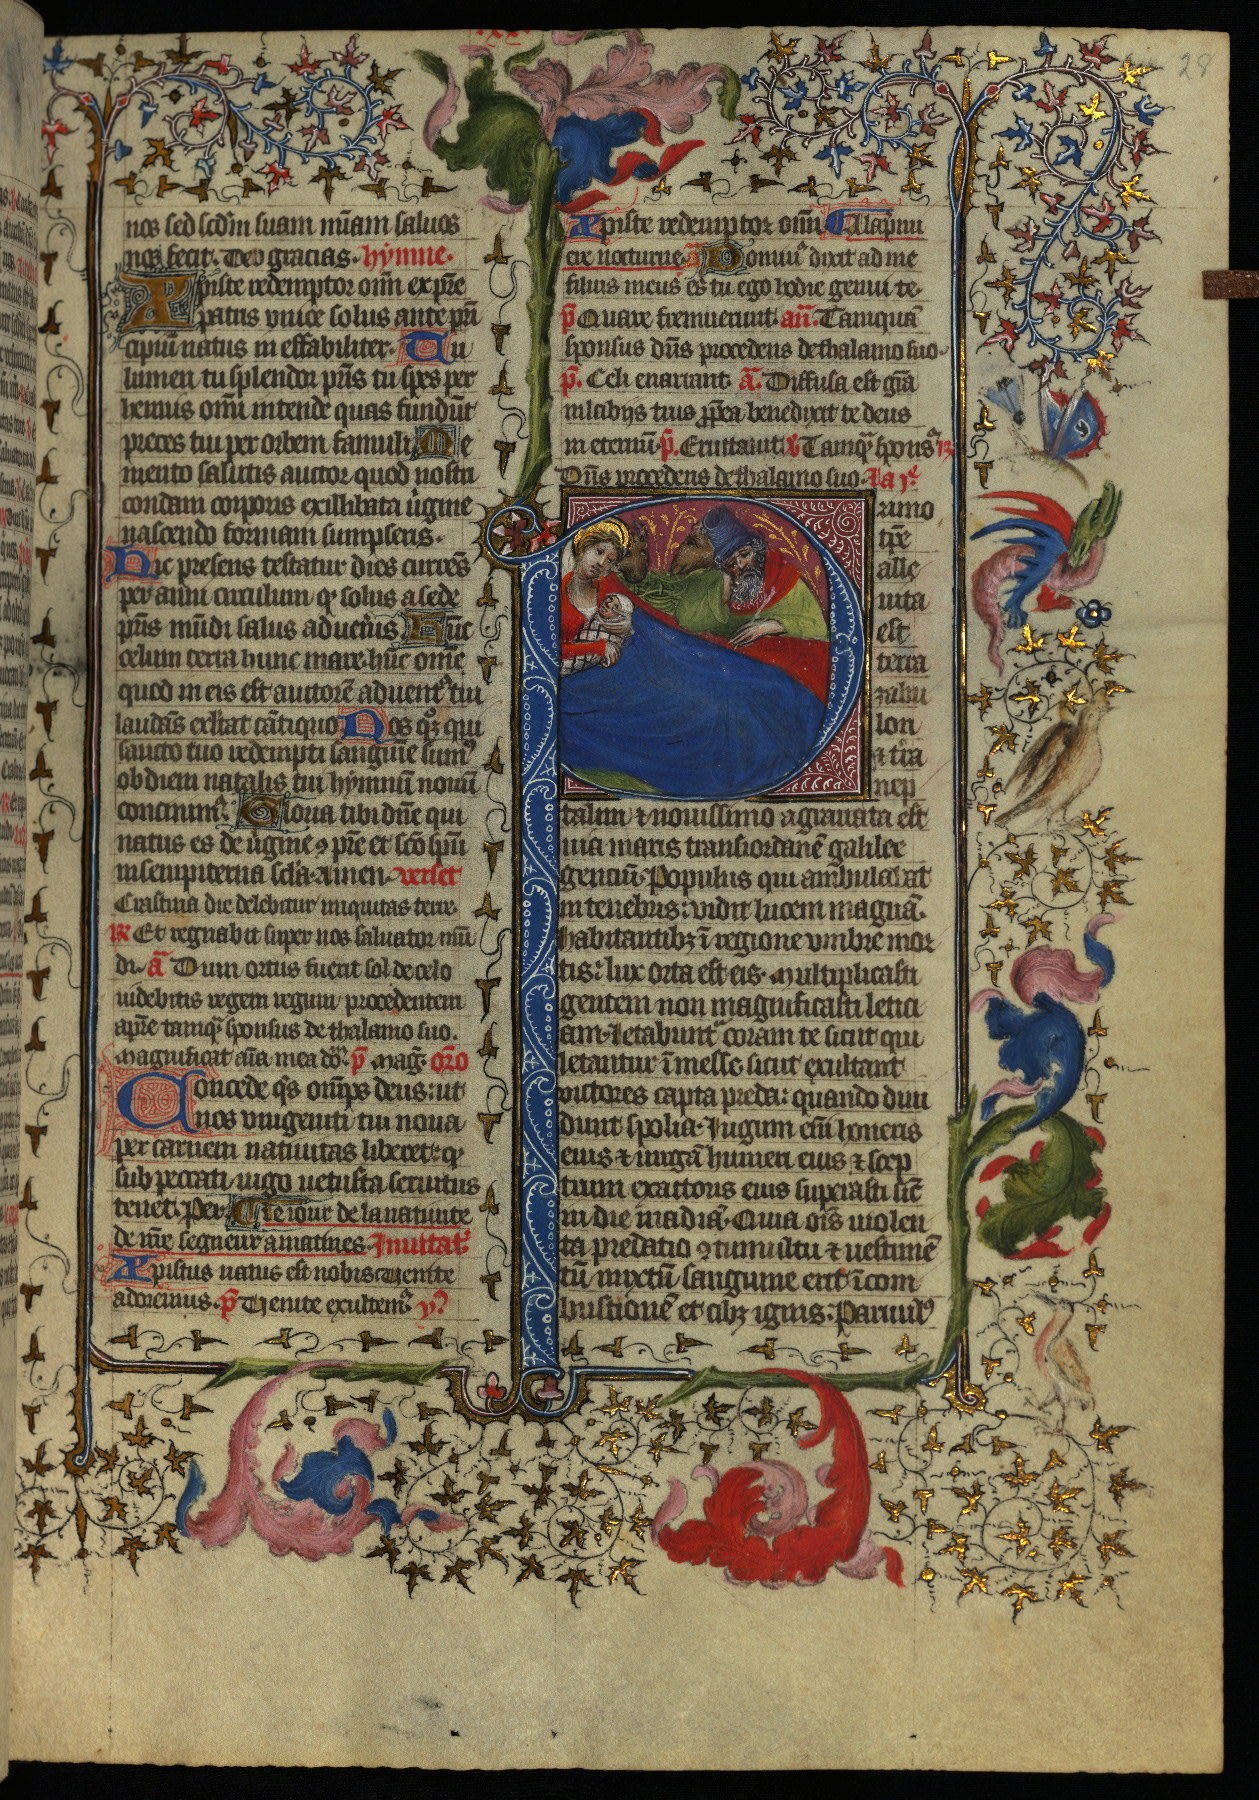 28
nos sed scdm suam mĩam saluos
nos fecit. Deo gracias. hymne.
Xpiste redemptor om̃ ex pr̃e
patris vnice solus ante prĩ
cipiũ natus in effabiliter. Tu
lumen tu splendor pr̃is tu spes per
hennis om̃i intende quas fundũt
preces tui per orbem famuli Me
mento salutis auctor quod nostri
condam corporis ex illibata ũgine
nascendo formam sumpseris.
Hic presens testatur dies currẽs
per anni circulum qr̃ solus a sede
pr̃is mũdi salus adueñis Hũc
celum terra hunc mare hũc om̃e
quod in eis est auctorẽ aduentꝰ tui
laudãs exltat cãtiquo Nos qꝫ qui
sancto tuo redempti sanguine sumꝰ
ob diem natalis tui hymnũ nouũ
concinimꝰ. Gloria tibi dñe qui
natus es de ũgine ꝯ pr̃e et sc̃o sp̃u
in sempiterna sc̃la. Amen. verset
Crastina die delebitur iniquitas terre.
R̃ Et regnabit super nos saluator mũ
di. ã Dum ortus fuerit sol de celo
uidebitis regem regum procedentem
a pr̃e tamqꝫ sponsus de thalamo suo.
Magnificat ãia mea dõ. p̃ Mag̃. orõ
Concede qs̃ omp̃s deus: ut
nos vnigeniti tui noua
per carnem natiuitas liberet: qr̃
sub peccati iugo uetusta seruitus
tenet. Per. Cle iour de la natiuite
de nr̃e segneur a matines. Inuitat̃
Xpistus natus est nobis uenite
adoremus. p̃ Uenite exultemꝰ. y̾
Xpiste redemptor om̃i Al a p̃mi
ere nocturne. ã Dominꝰ dixit ad me
filius meus es tu ego hodie genui te.
p̃ Quare fremuerunt. añ. Tamquã
sponsus dñs procedens de thalamo suo.
p̃. Celi enarrant. ã. Diffusa est grã
in labijs tuis p̃p̃ea benedixit te deus
in eternũ. p̃. Eructauit. v̾ Tamqꝫ sponsꝰ R̃
Dñs procedens de thalamo suo. la y̾e
rimo
tp̃re
alle
uiata
est
terra
zabu
lon
⁊ tr̃a
nep
talim ⁊ nouissimo agrauata est
uia maris trans iordanẽ galilee
genciũ. Populus qui ambulabat
in tenebris: vidit lucem magnã.
habitantibꝫ ĩ regione vmbre mor
tis: lux orta est eis. Multiplicasti
gentem non magnificasti leti
am. Letabuntꝰ coram te sicut qui
letantur ĩ messe sicut exultant
victores capta preda: quando diui
dunt spolia. Jugum em̃ honeris
eius ⁊ uirgã humeri eius ⁊ scep
trum exactoris eius superasti sic̃
in die madiã. Quia om̃is uiolen
ta predatio ꝯ tumultu ⁊ uestimẽ
tũ mixtũ sanguine erit ĩ com
bustionẽ et cibꝫ ignis. Paruulꝰ